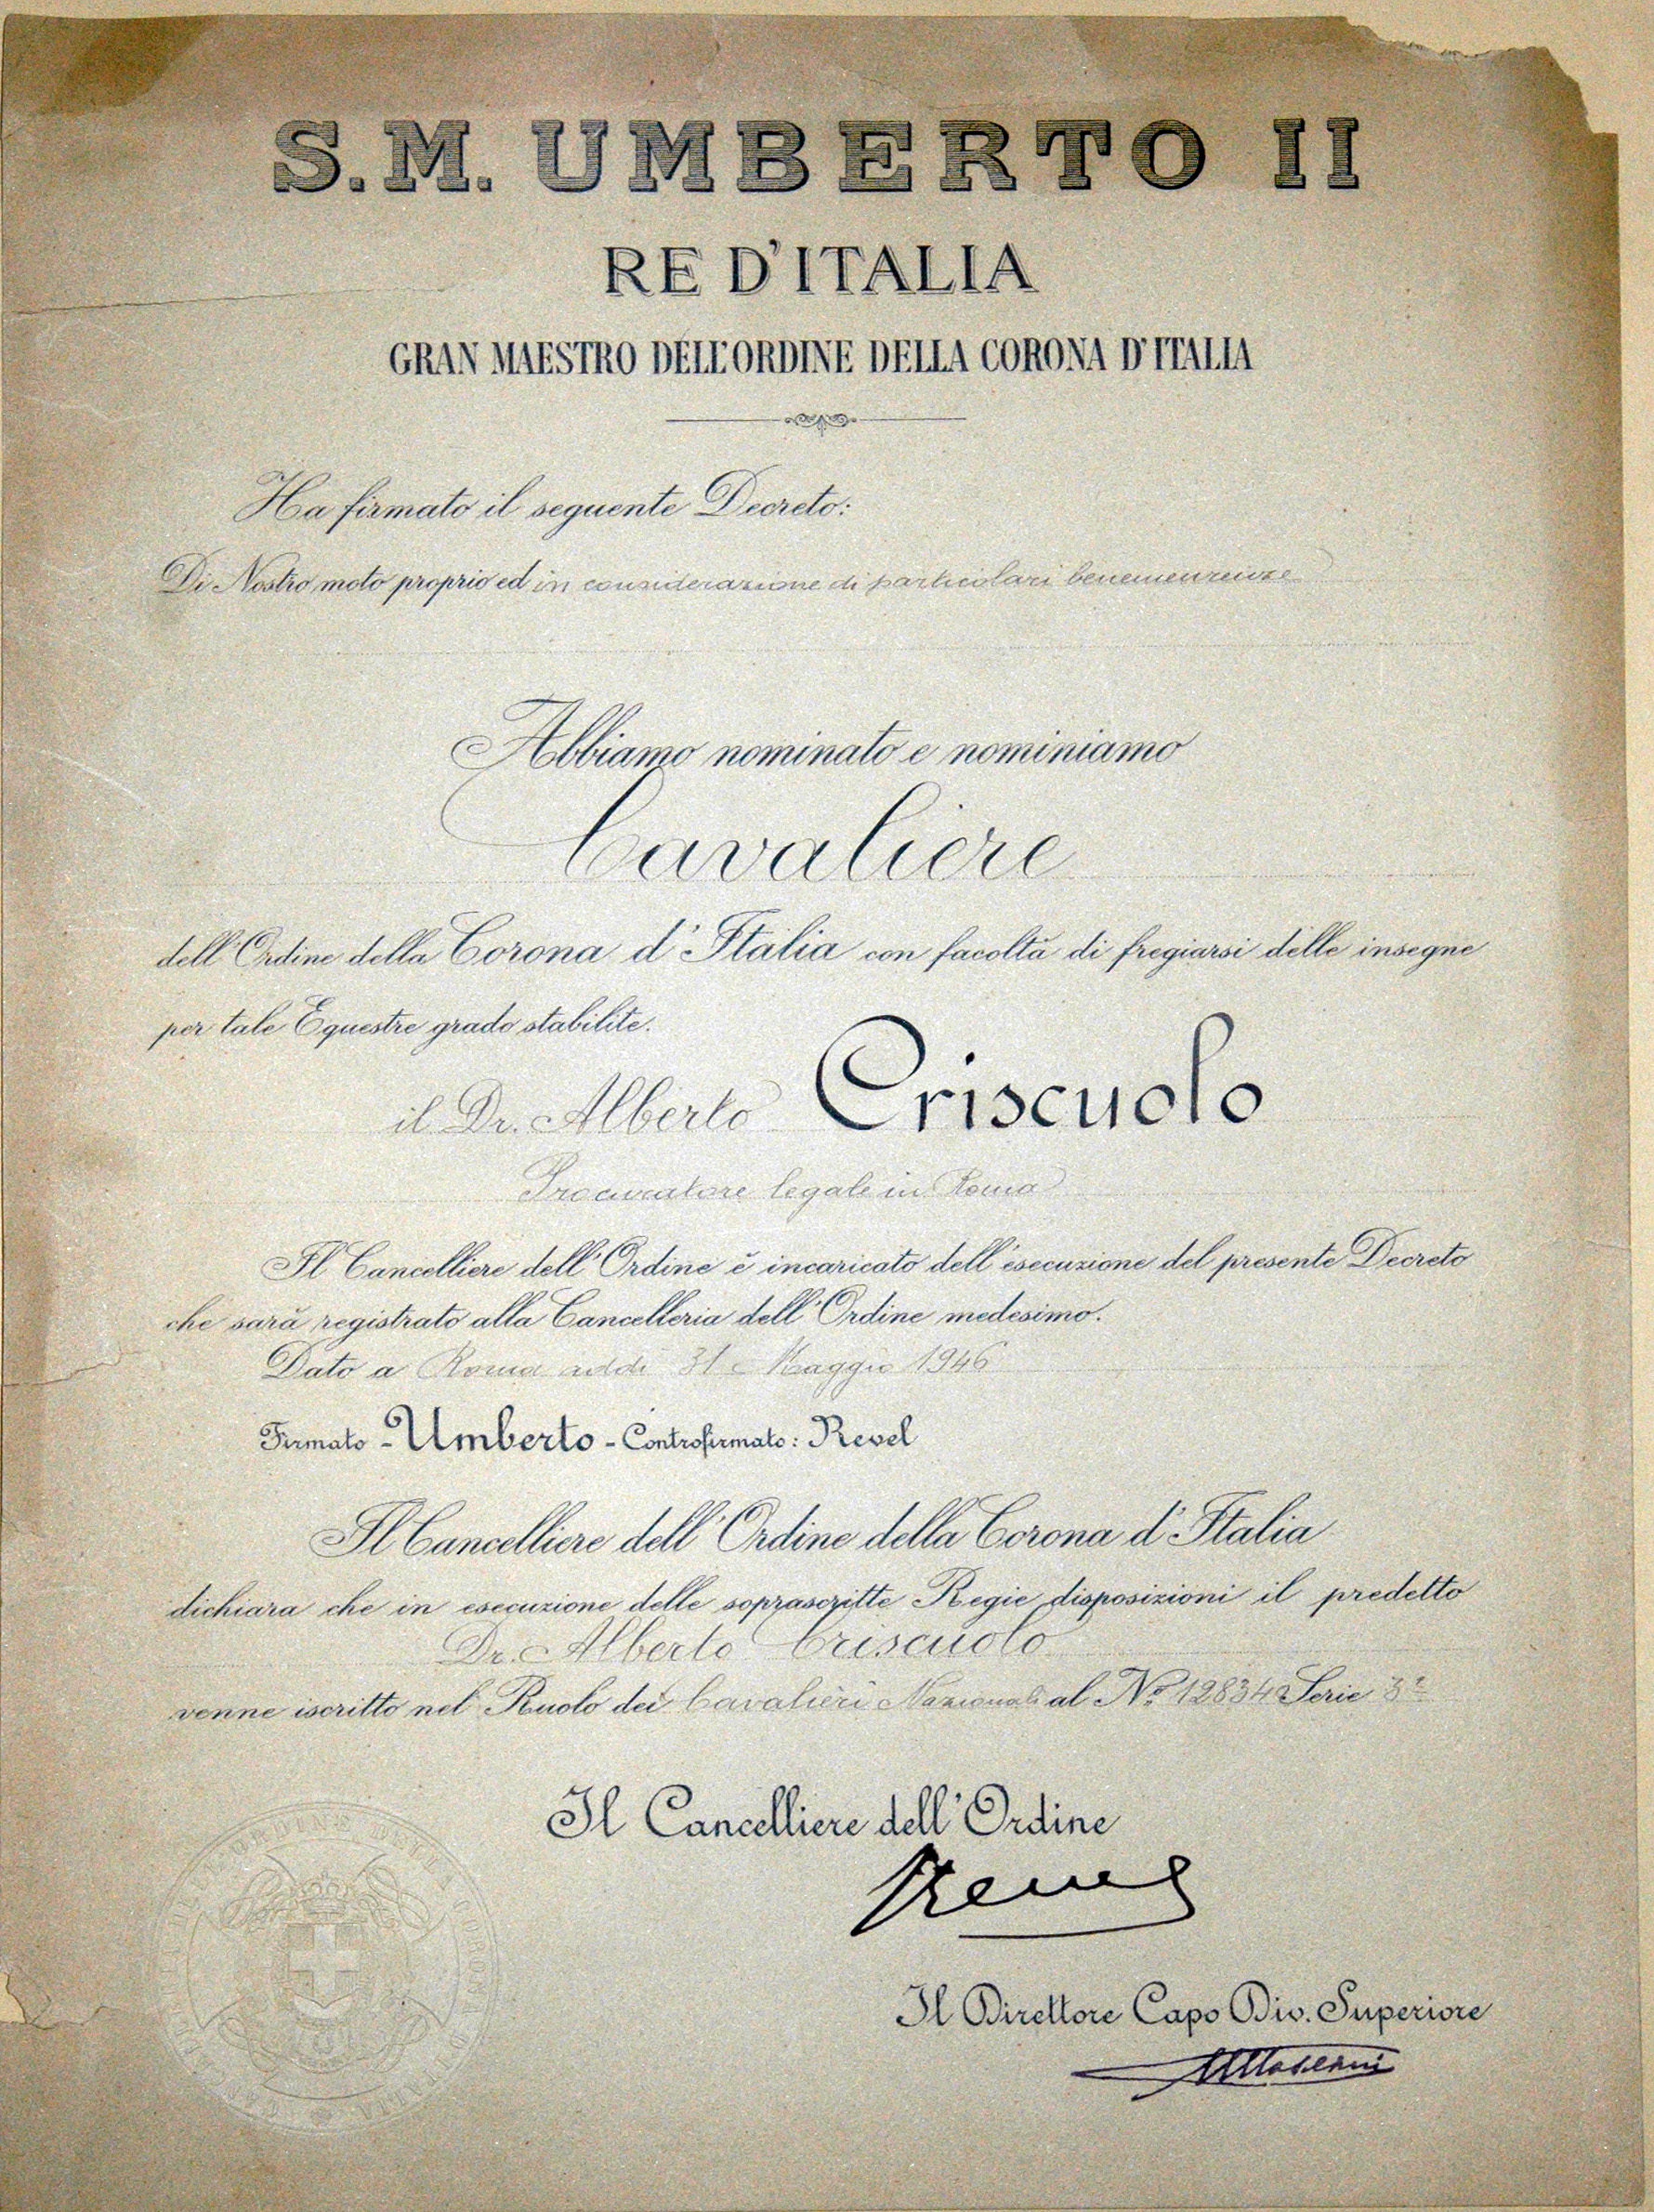 S.M. UMBERTO II
RE D'ITALIA
GRAN MAESTRO DELL'ORDINE DELLA CORONA D'ITALIA
Ha firmato il seguente Decreto:
Di Nostro moto proprio ed in considerazione di particolari benemerenze
Abbiamo nominato e nominiamo
Cavaliere
dell'Ordine della Corona d'Italia con facoltà di fregiarsi delle insegne
per tale Equestre grado stabilite.
il Dr. Alberto Criscuolo
Procuratore legale in Roma
Il Cancelliere dell'Ordine è incaricato dell'esecuzione del presente Decreto
che sarà registrato alla Cancelleria dell'Ordine medesimo.
Dato a Roma addì 31 Maggio 1946
Firmato - Umberto - Controfirmato: Revel
Il Cancelliere dell'Ordine della Corona d'Italia
dichiara che in esecuzione delle soprascritte Regie disposizioni il predetto
Dr. Alberto Criscuolo
venne iscritto nel Ruolo dei Cavalieri Nazionali al No 12834 Serie 3a
Il Cancelliere dell'Ordine
Revel
Il Direttore Capo Div. Superiore